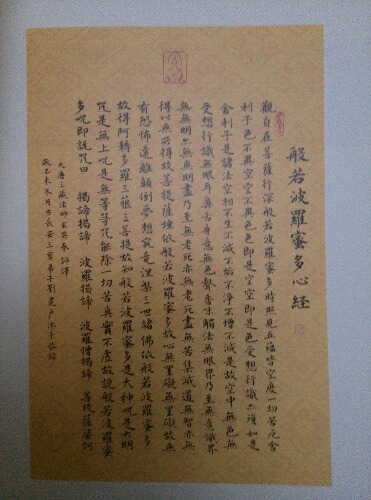 般若波羅蜜多心經
觀自在菩薩行深般若波羅蜜多時照見五蘊皆空度一切苦厄舍
利子色不異空空不異色色即是空空即是色受想行識亦復如是
舍利子是諸法空相不生不滅不垢不淨不增不減是故空中無色無
受想行識無眼耳鼻舌身意無色聲香味觸法無眼界乃至無意識界
無無明亦無無明盡乃至無老死亦無老死盡無苦集滅道無智亦無
得以無所得故菩提薩埵依般若波羅蜜多故心無罣礙無罣礙故無
有恐怖遠離顛倒夢想究竟涅槃三世諸佛依般若波羅蜜多
故得阿耨多羅三藐三菩提故知般若波羅蜜多是大神咒是大明
咒是無上咒是無等等咒能除一切苦真實不虛故說般若波羅蜜
多咒即說咒曰 揭諦揭諦 波羅揭諦 波羅僧揭諦 菩提薩婆訶
大唐三藏法師玄奘奉詔譯
冬月古長安三寶弟子劉建